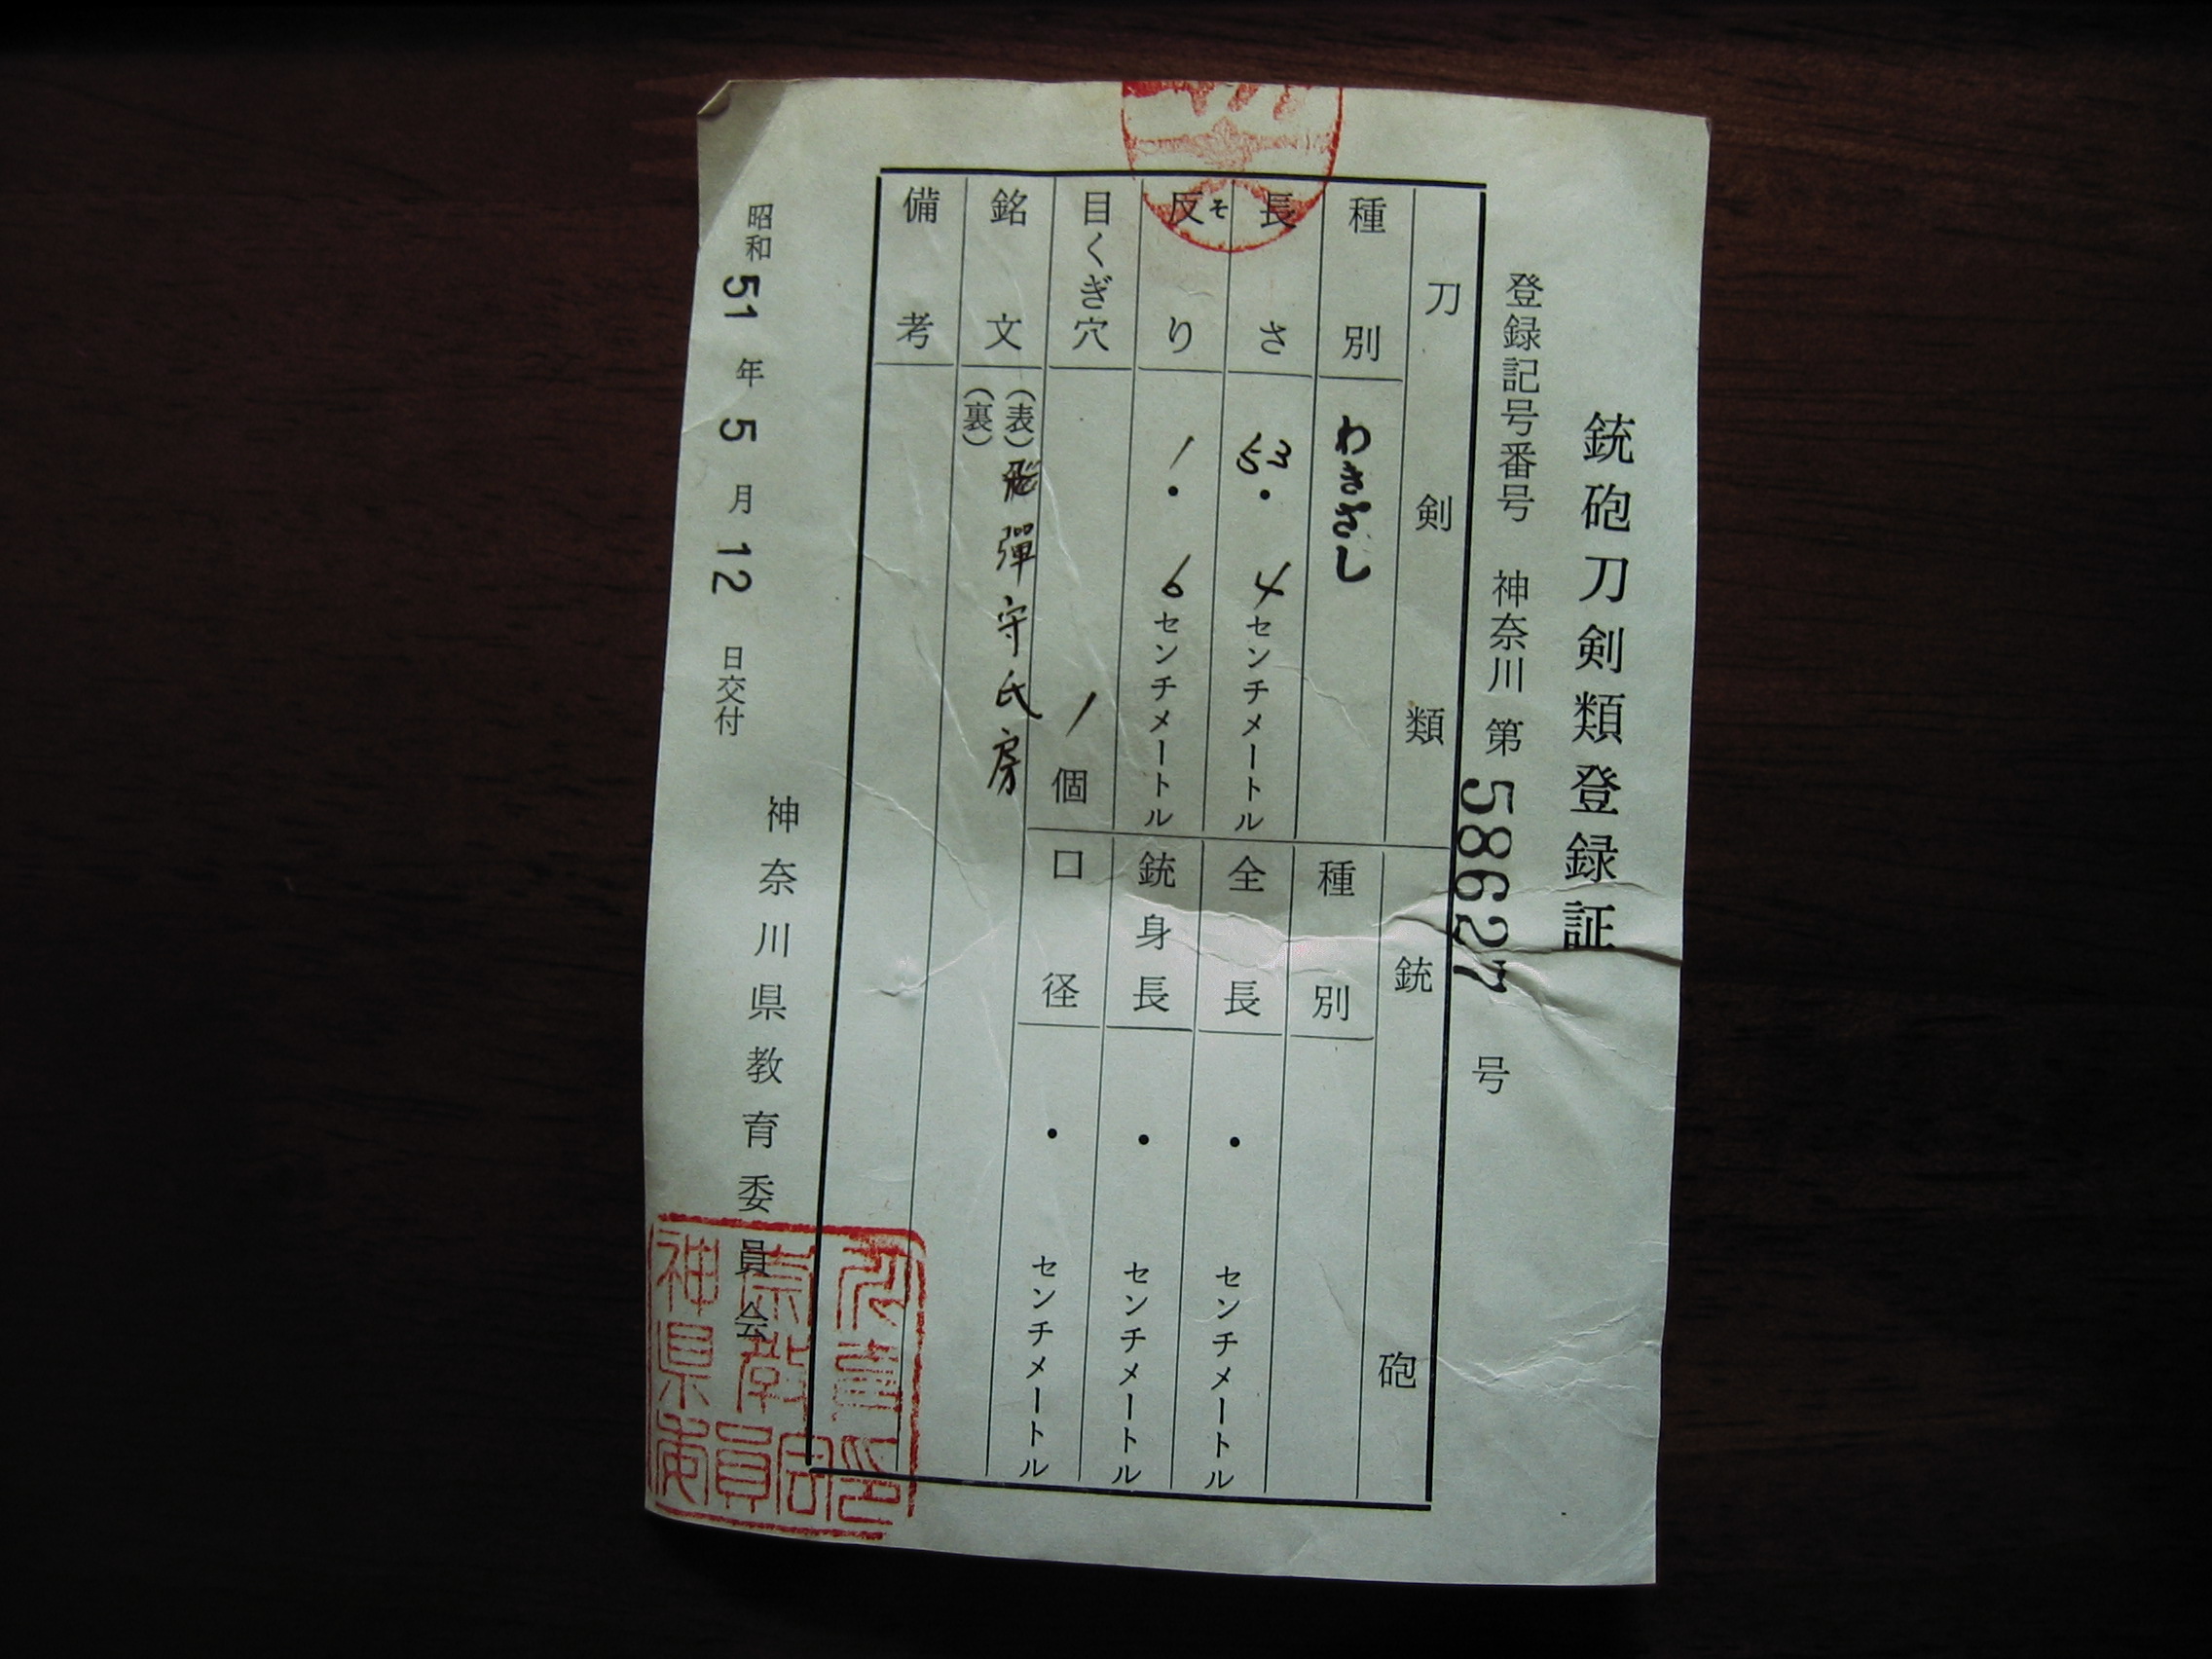 銃砲刀剣類登録証
登録記号番号 神奈川 第 58627 号
刀剣類
種別 わきざし
長さ 53.4センチメートル
反り そ 1.6センチメートル
目くぎ穴 1個
銘文 (表) 飛彈守氏房
(裏)
備考
銃砲
種別
全長 ・ センチメートル
銃身長 ・ センチメートル
口径 ・ センチメートル
昭和 51 年 5 月 12 日交付
神奈川県教育委員会